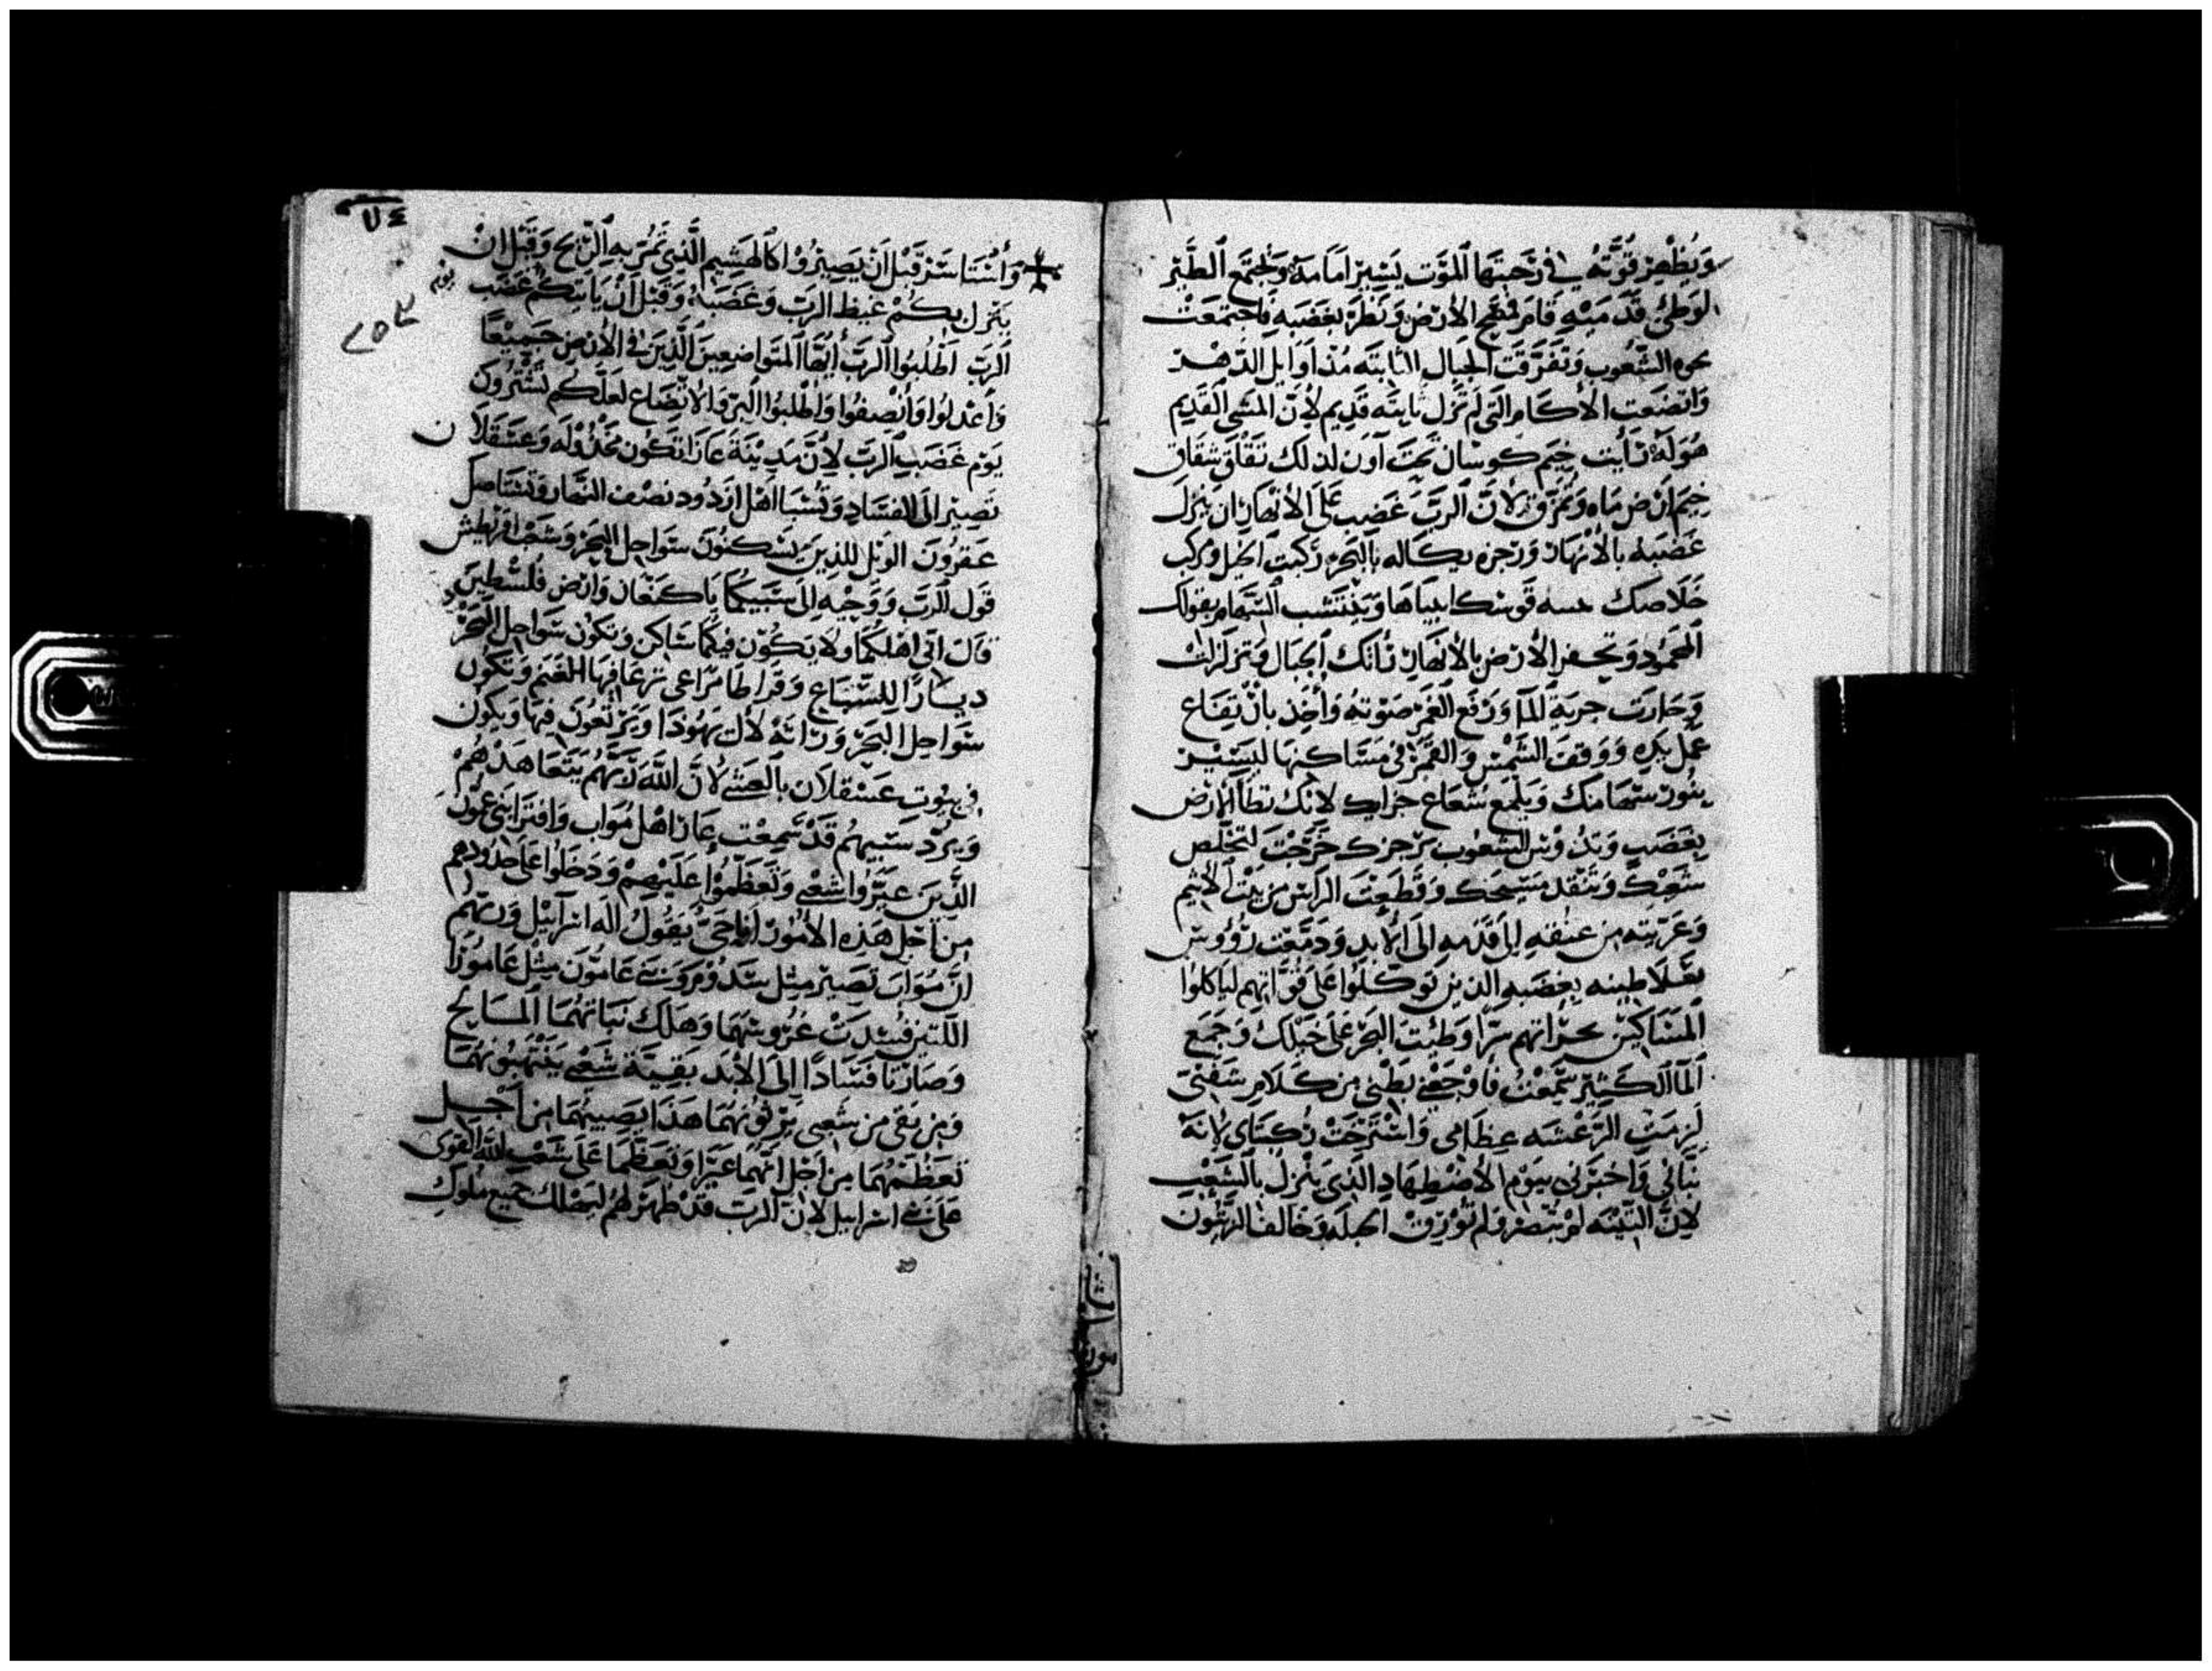 ويظهر قوته في رحبتها الموت يسير امامه ويجتمع الطير
لوطئ قدميه قام فمسح الارض ونظر بغضبه فاجتمعت
الشعوب وتفرقت الجبال الثابته مذ اوايل الدهر
واتضعت الاكام التي لم تزل ثابته قديم لان المشي القديم
هو له رايت خيم كوسان تحت آون لذلك تقلق شقاق
خيم ارض ماه وتمزق لان الرب غضب على الانهار ان ينزل
غضبه بالانهار ورجزه بالبحر ركبت الخيل ومركب
خلاصك قوسك السهام بقولك
المحمود وتحفر الارض بالانهار رأتك الجبال فتزلزلت
وحارت جرية الما ورفع الغمر صوته واخذ بان
عمل يده ووقف الشمس والقمر في مساكنها ليسير
بنور سهامك ويلمع شعاع حرابك لانك تطأ الارض
بغضب وتدوس الشعوب برجزك خرجت لتخلص
شعبك وتنقذ مسيحك وقطعت الراس من بيت الاثيم
وعريته من عنقه الى قدمه الى الابد ودمغت رؤوس
بغضبه الذين توكلوا على قواتهم لياكلوا
المساكين سرا وطئت البحر على خيلك وجمع
الما الكثير سمعت فاوجعني بطني من كلام شفتي
لزمت الرعشه عظامي واسترخت ركبتاي لانه
نبأني واخبرني بيوم الاضطهاد الذي ينزل بالشعب
لان التينه لم تورق وخالف الزيتون
٧٤
وأنتاسر قبل أن يصيروا كالهشيم الذي تمر به الريح وقبل ان
ينزل بكم غيظ الرب وغضبه وقبل أن ياتيكم غضب يوم
الرب اطلبوا الرب أيها المتواضعين الذين في الارض جميعا
واعدلوا وأنصفوا واطلبوا البر والاتضاع لعلكم تسترون
يوم غضب الرب لأن مدينة عازا تكون مخذوله وعسقلان
تصير الى الفساد وتسبا اهل ازدود نصف النهار وتستاصل
عقرون الويل للذين يسكنون سواحل البحر وشعب
قول الرب ووحيه الى سبيكما يا كنعان وارض فلسطين
قال اني اهلككما ولا يكون فيكما ساكن وتكون سواحل البحر
ديارا للسباع وقراطا مراعي ترعا فيها الغنم وتكون
سواحل البحر وراثه لآل يهودا ويرتعون فيها ويكون
في بيوت عسقلان بالعشي لان الله ربهم يتعاهدهم
ويرد سبيهم قد سمعت عار اهل مواب وافترا بني عمون
الذين عيروا شعبي وتعظموا عليهم ودخلوا على حدودهم
من اجل هذه الامور انا حي يقول اله اسراييل وربهم
ان مواب تصير مثل سدوم وبني عامون مثل عامورا
اللتين فسدت غروسهما وهلك نباتهما المسايح
وصارتا فسادا الى الابد بقية شعبي ينتهبونهما
ومن بقي من شعبي يرثونهما هذا يصيبهما من اجل
تعظمهما من اجل انهما عيرا وتعظما على شعب الله القوي
على بني اسراييل لان الرب قد ظهر لهم ليهلك جميع ملوك